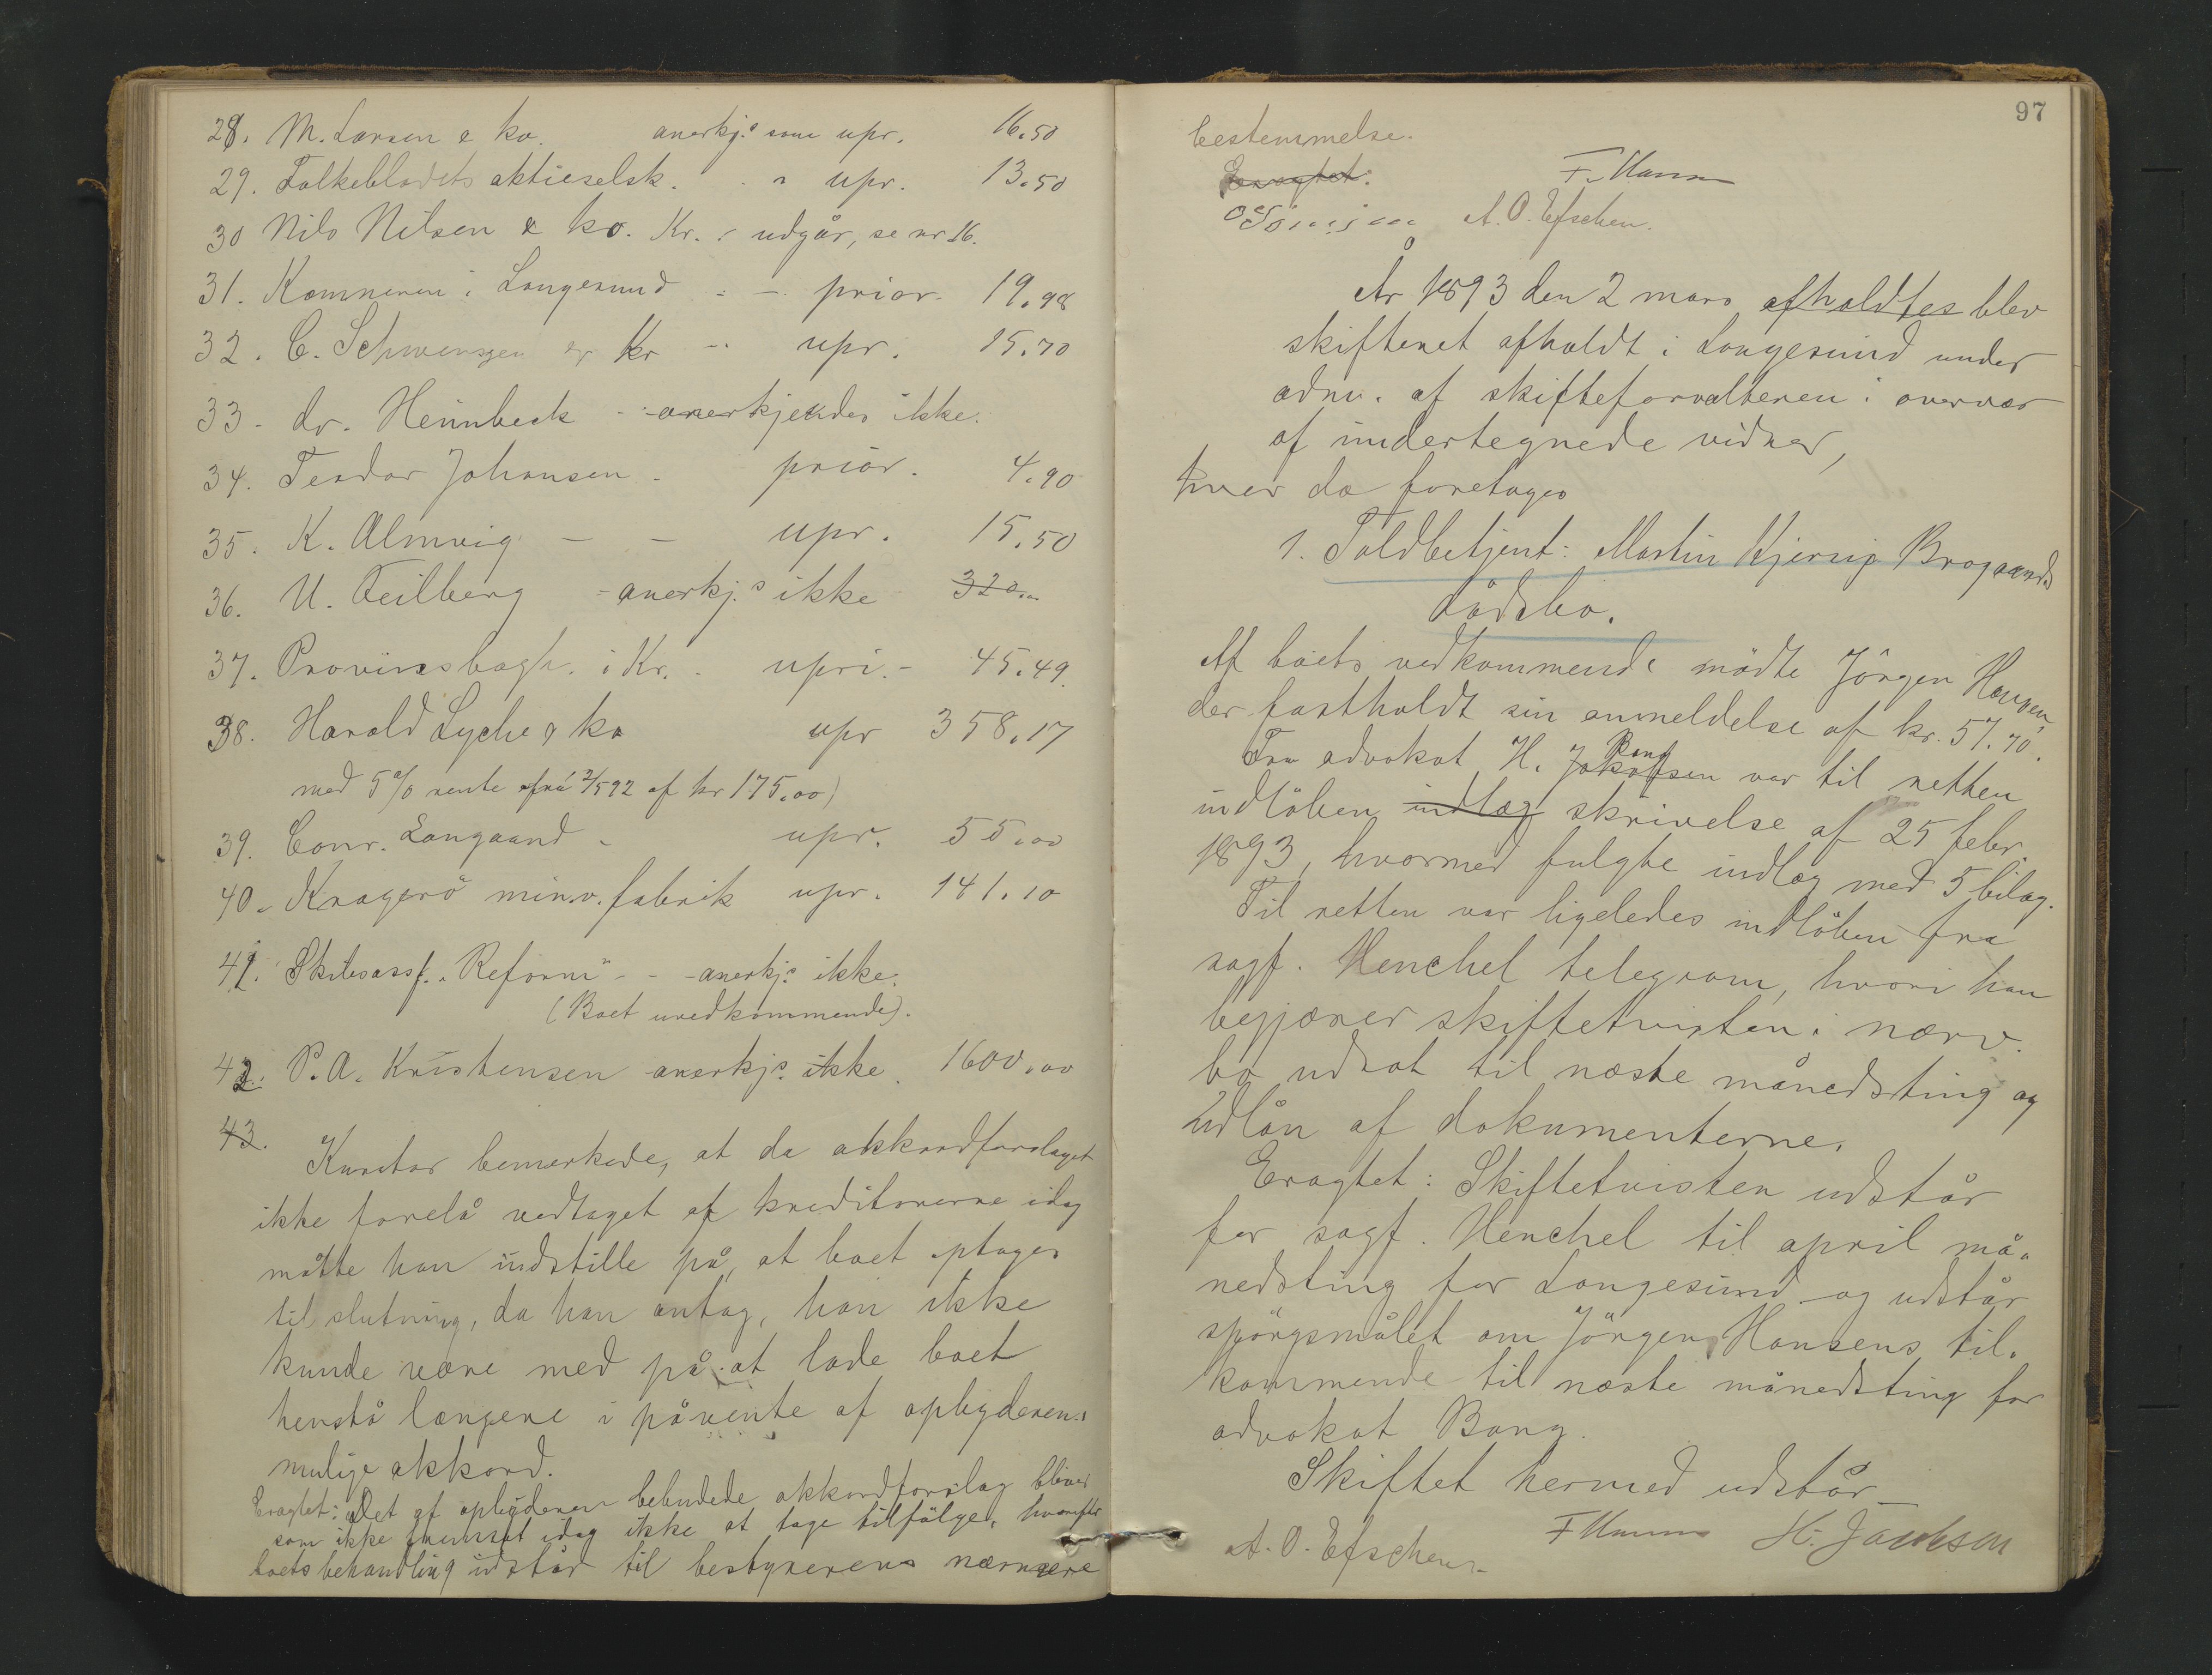 28. M. Larsen & ko. anerkj.s som upr. 16.50
29. Folkebladets aktieselsk. - " upr. 13.50
30 Nils Nilsen & ko. Kr. : udgår, se nr 16.
31. Kæmneren i Langesund : - prior. 19.98
32. C. Schwenszen Kr - upr. 15.70
33 - dr. Heimbeck - anerkjendes ikke.
34. Teodor Johansen - prior. 4.90
35. K. Almvig - - upr. 15.50
36. U. Feilberg - anerkj.s ikke 320.00
37. Provinsbogh. i Kr. - upri. - 45.49.
38. Harald Lyche & ko upr 358.17
med 5% rente fra 2/5 92 af kr 175.00)
39. Conr. Langaard - upr. 55.00
40. Kragerö min.v. fabrik upr. 141.10
41. Skibsassf. "Reform" - - anerkj.s ikke.
(Boet uvedkommende).
42. P. A. Kristensen anerkjs. ikke. 1600.00
43.
Kurator bemerkede, at da akkordforslaget
ikke forelå vedtaget af kreditorerne idag
måtte han indstille på, at boet optages
til slutning, da han antog, han ikke
kunde være med på at lade boet
henstå længere i påvente af opbyderens
mulige akkord.
Eragtet: Det af opbyderen bebudede akkordforslag bliver
som ikke fremsat idag ikke at tage tilfölge, hvorefter
boets behandling udstår til bestyrerens nærmere
97
bestemmelse.
Eragtet.
A. O. Efschen.
År 1893 den 2 mars afholdtes blev
skifteret afholdt i Langesund under
adm. af skifteforvalteren i overvær
af undertegnede vidner,
hvor da foretages
1. Toldbetjent Martin Kjersig Brogaards
dödsbo.
Af boets vedkommende mödte Jörgen Hansen,
der fastholdt sin anmeldelse af kr. 57.70.
Fra advokat H. Jakobsen Bang var til retten
indlöben indlæg skrivelse af 25 febr.
1893, hvormed fulgte indlæg med 5 bilag.
Til retten var ligeledes indlöben fra
sagf. Henchel telegram, hvori han
begjærer skiftetvisten i nærv.
bo udsat til næste månedsting og
udlån af dokumenterne.
Eragtet: Skiftetvisten udstår
for sagf. Henchel til april må-
nedsting for Langesund og udstår
spörgsmålet om Jörgen Hansens til-
kommende til næste månedsting for
advokat Bang.
Skiftet hermed udstår
A. O. Efschen. H. Jacobsen